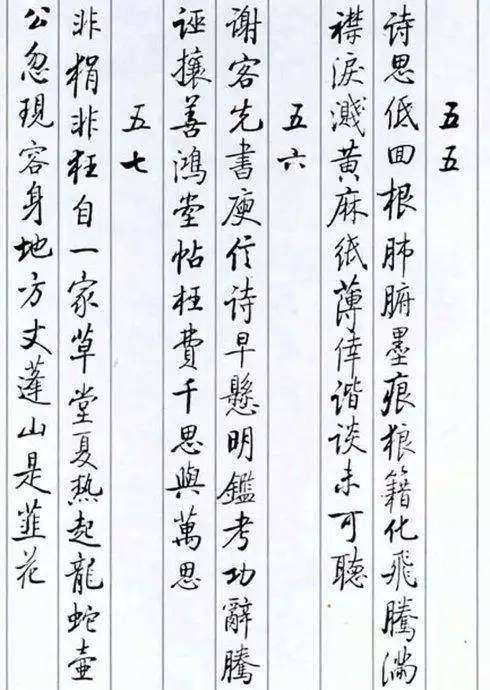 五五
诗思低回根肺腑墨痕狼籍化飛騰满
襟淚濺黄麻纸薄倖谐谈未可聽
五六
谢客先書庾信诗早懸明鑑考功辭騰
誣攘善鴻堂帖枉費千思與萬思
五七
非狷非狂自一家草堂夏热起龍蛇壺
公忽現容身地方丈蓬山是韮花